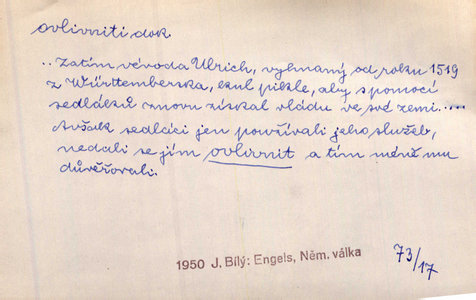 ovlivniti dok
..Zatím vévoda Ulrich, vyhnaný od roku 1519
z Württemberska, kul pikle, aby s pomocí
sedláků znovu získal vládu ve své zemi.....
Avšak sedláci jen používali jeho služeb,
nedali se jím ovlivnit a tím méně mu
důvěřovali.
1950 J. Bílý: Engels, Něm. válka
73/17